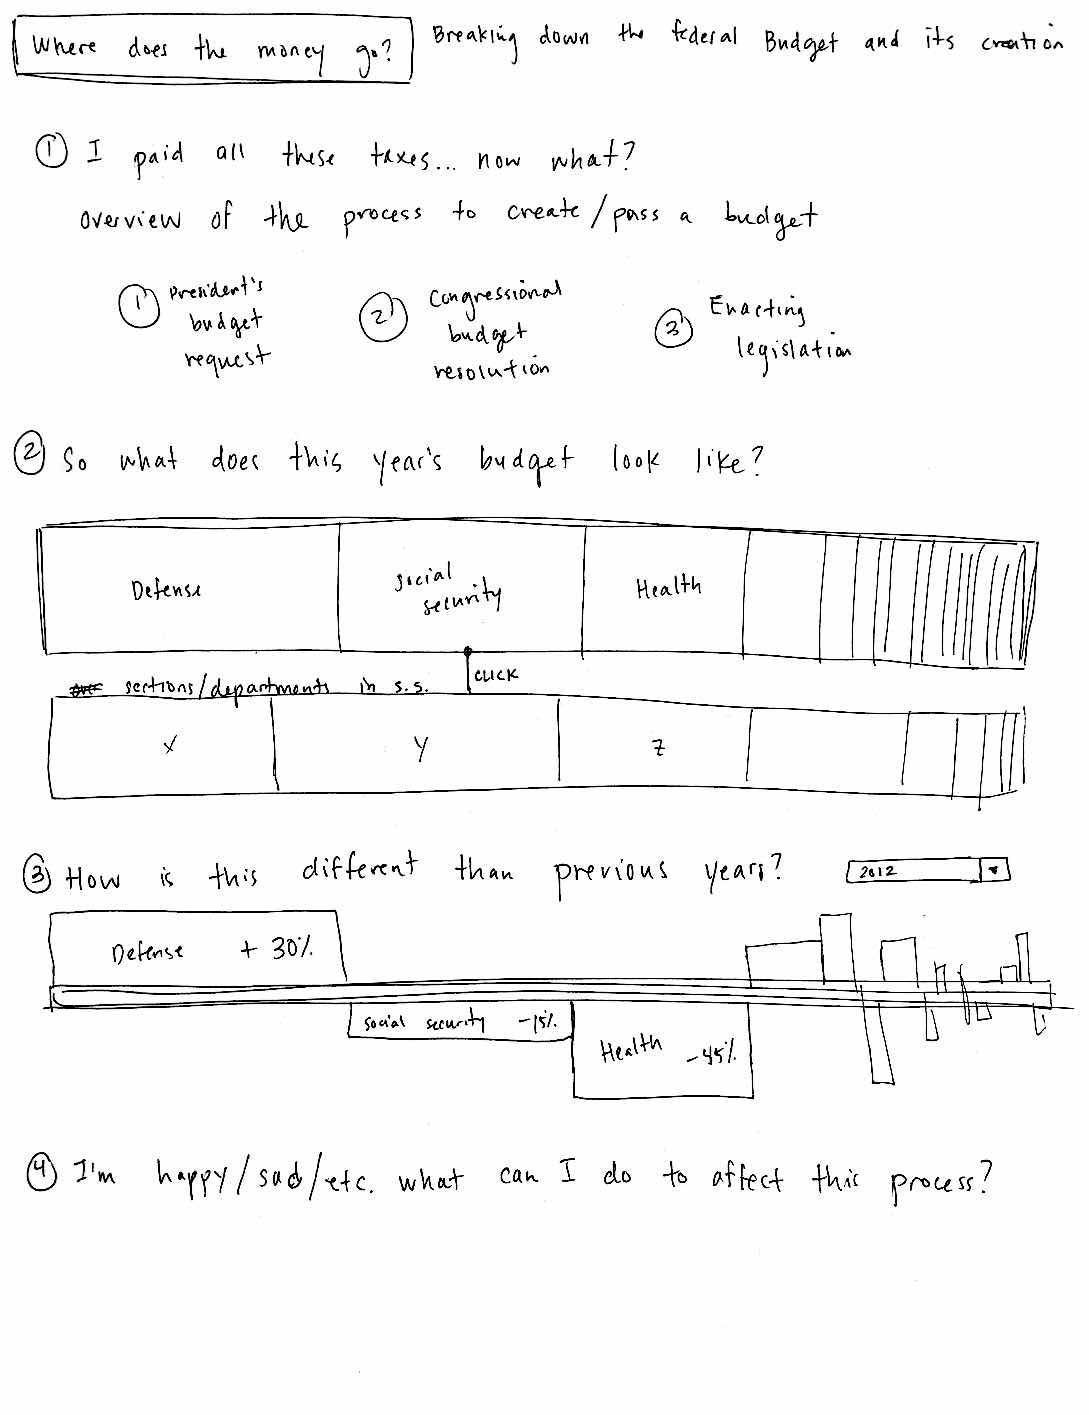 Where does the money go?
Breaking down the federal Budget and its creation
① I paid all these taxes... now what?
overview of the process to create/pass a budget
① President's
budget
request
② Congressional
budget
resolution
③ Enacting
legislation
② So what does this year's budget look like?
Defense
social
security
Health
CLICK
sections/departments in s.s.
X
Y
Z
③ How is this different than previous years?
2012
Defense + 30%
social security -15%
Health -45%
④ I'm happy/sad/etc. what can I do to affect this process?